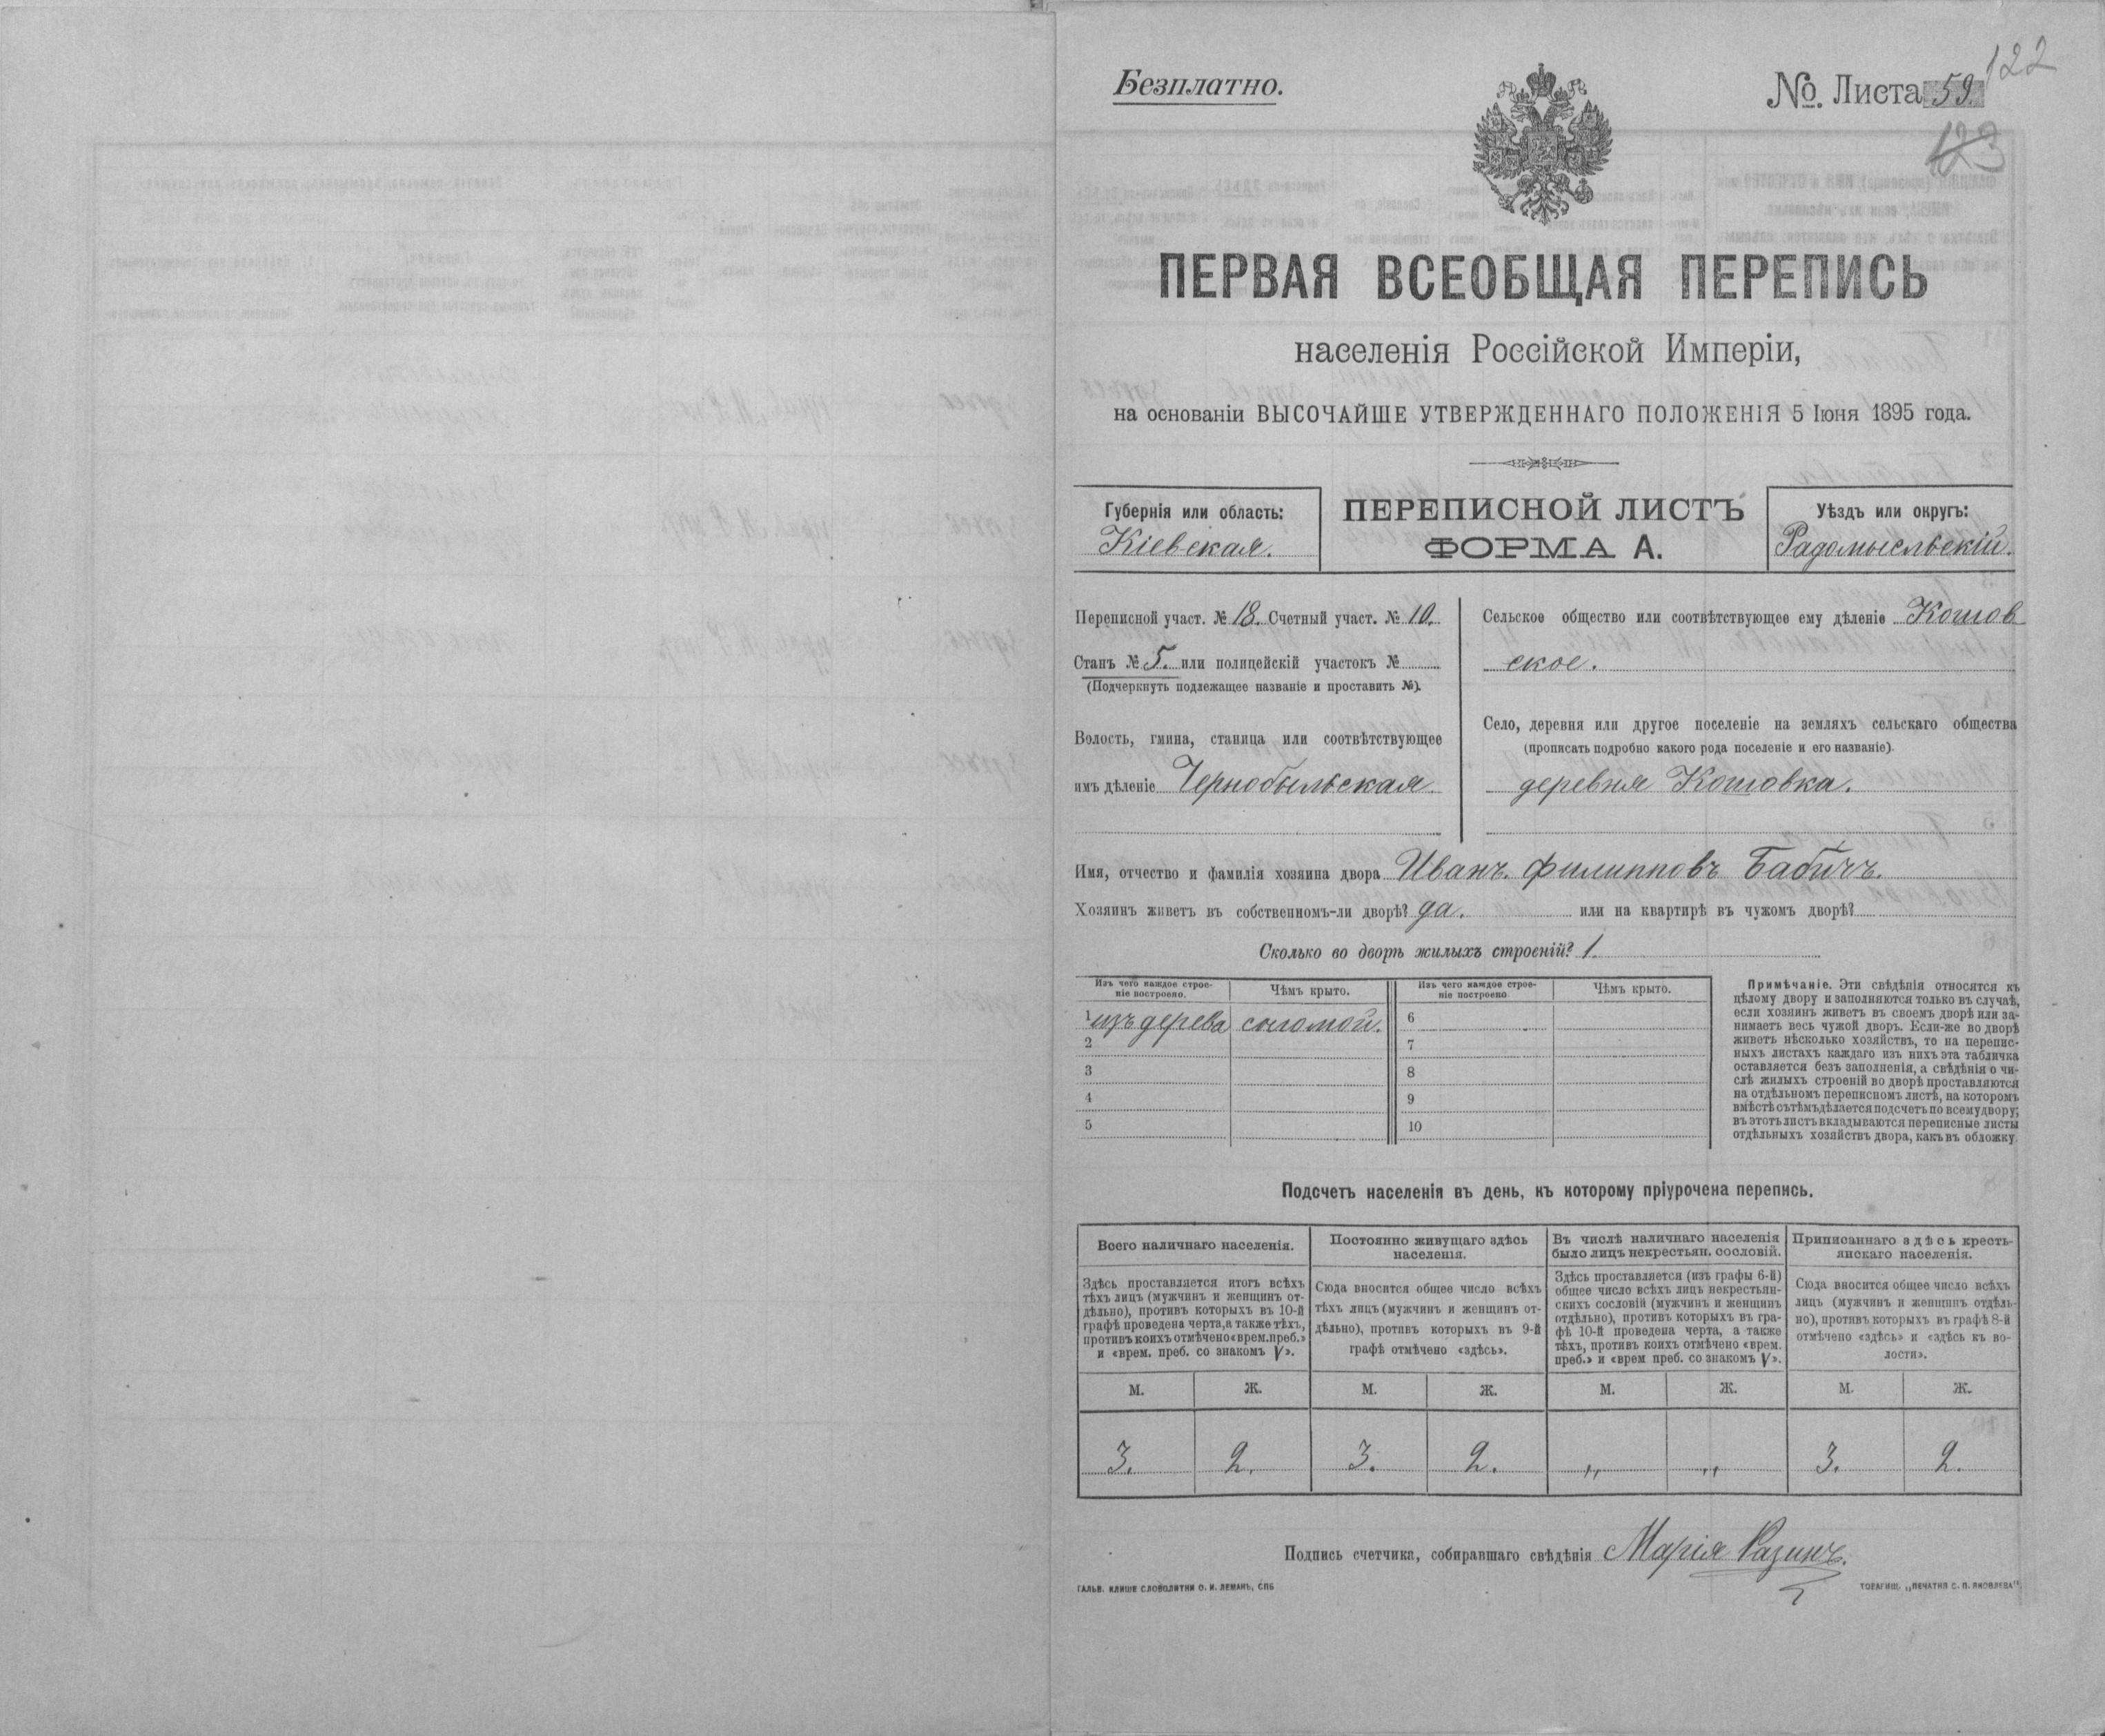 Безплатно.
№. Листа 59.
122
123
ПЕРВАЯ ВСЕОБЩАЯ ПЕРЕПИСЬ
населенія Россійской Имперіи,
на основаніи ВЫСОЧАЙШЕ УТВЕРЖДЕННАГО ПОЛОЖЕНІЯ 5 Іюня 1895 года.
Губернія или область:
Кіевская.
ПЕРЕПИСНОЙ ЛИСТЪ
ФОРМА А.
Уѣздъ или округъ:
Радомысльскій.
Переписной участ. № 18. Счетный участ. № 10.
Станъ № 5. или полицейскій участокъ №
(Подчеркнуть подлежащее названіе и проставить №).
Волость, гмина, станица или соотвѣтствующее
имъ дѣленіе Чернобыльская.
Сельское общество или соотвѣтствующее ему дѣленіе Кошов
ское.
Село, деревня или другое поселеніе на земляхъ сельскаго общества
(прописать подробно какого рода поселеніе и его названіе).
деревня Кошовка.
Имя, отчество и фамилія хозяина двора Иванъ. Филипповъ Бабичъ.
Хозяинъ живетъ въ собственномъ-ли дворѣ? да. или на квартирѣ въ чужомъ дворѣ?
Сколько во дворѣ жилыхъ строеній? 1.
Изъ чего каждое строе-
ніе построено.
Чѣмъ крыто.
Изъ чего каждое строе-
ніе построено
Чѣмъ крыто.
1 изъ дерева соломой. 6
2 7
3 8
4 9
5 10
Примѣчаніе. Эти свѣдѣнія относятся къ
цѣлому двору и заполняются только въ случаѣ,
если хозяинъ живетъ въ своемъ дворѣ или за-
нимаетъ весь чужой дворъ. Если-же во дворѣ
живетъ нѣсколько хозяйствъ, то на перепис-
ныхъ листахъ каждаго изъ нихъ эта табличка
оставляется безъ заполненія, а свѣдѣнія о чи-
слѣ жилыхъ строеній во дворѣ проставляются
на отдѣльномъ переписномъ листѣ, на которомъ
вмѣстѣ съ тѣмъ дѣлается подсчетъ по всему двору;
въ этотъ листъ вкладываются переписные листы
отдѣльныхъ хозяйствъ двора, какъ въ обложку.
Подсчетъ населенія въ день, къ которому пріурочена перепись.
Всего наличнаго населенія.
Здѣсь проставляется итогъ всѣхъ
тѣхъ лицъ (мужчинъ и женщинъ от-
дѣльно), противъ которыхъ въ 10-й
графѣ проведена черта, а также тѣхъ,
противъ коихъ отмѣчено «врем. преб.»
и «врем. преб. со знакомъ V».
Постоянно живущаго здѣсь
населенія.
Сюда вносится общее число всѣхъ
тѣхъ лицъ (мужчинъ и женщинъ от-
дѣльно), противъ которыхъ въ 9-й
графѣ отмѣчено «здѣсь».
Въ числѣ наличнаго населенія
было лицъ некрестьян. сословій.
Здѣсь проставляется (изъ графы 6-й)
общее число всѣхъ лицъ некрестьян-
скихъ сословій (мужчинъ и женщинъ
отдѣльно), противъ которыхъ въ гра-
фѣ 10-й проведена черта, а также
тѣхъ, противъ коихъ отмѣчено «врем.
преб.» и «врем преб. со знакомъ V».
Приписаннаго здѣсь кресть-
янскаго населенія.
Сюда вносится общее число всѣхъ
лицъ (мужчинъ и женщинъ отдѣль-
но), противъ которыхъ въ графѣ 8-й
отмѣчено «здѣсь» и «здѣсь къ во-
лости».
М. Ж. М. Ж. М. Ж. М. Ж.
3. 2. 3. 2. „ „ 3. 2.
Подпись счетчика, собиравшаго свѣдѣнія Марія Разинъ.
ГАЛЬВ. КЛИШЕ СЛОВОЛИТНИ О. И. ЛЕМАНЪ, СПБ
ТОВАРИЩ. „ПЕЧАТНЯ С. П. ЯКОВЛЕВА".